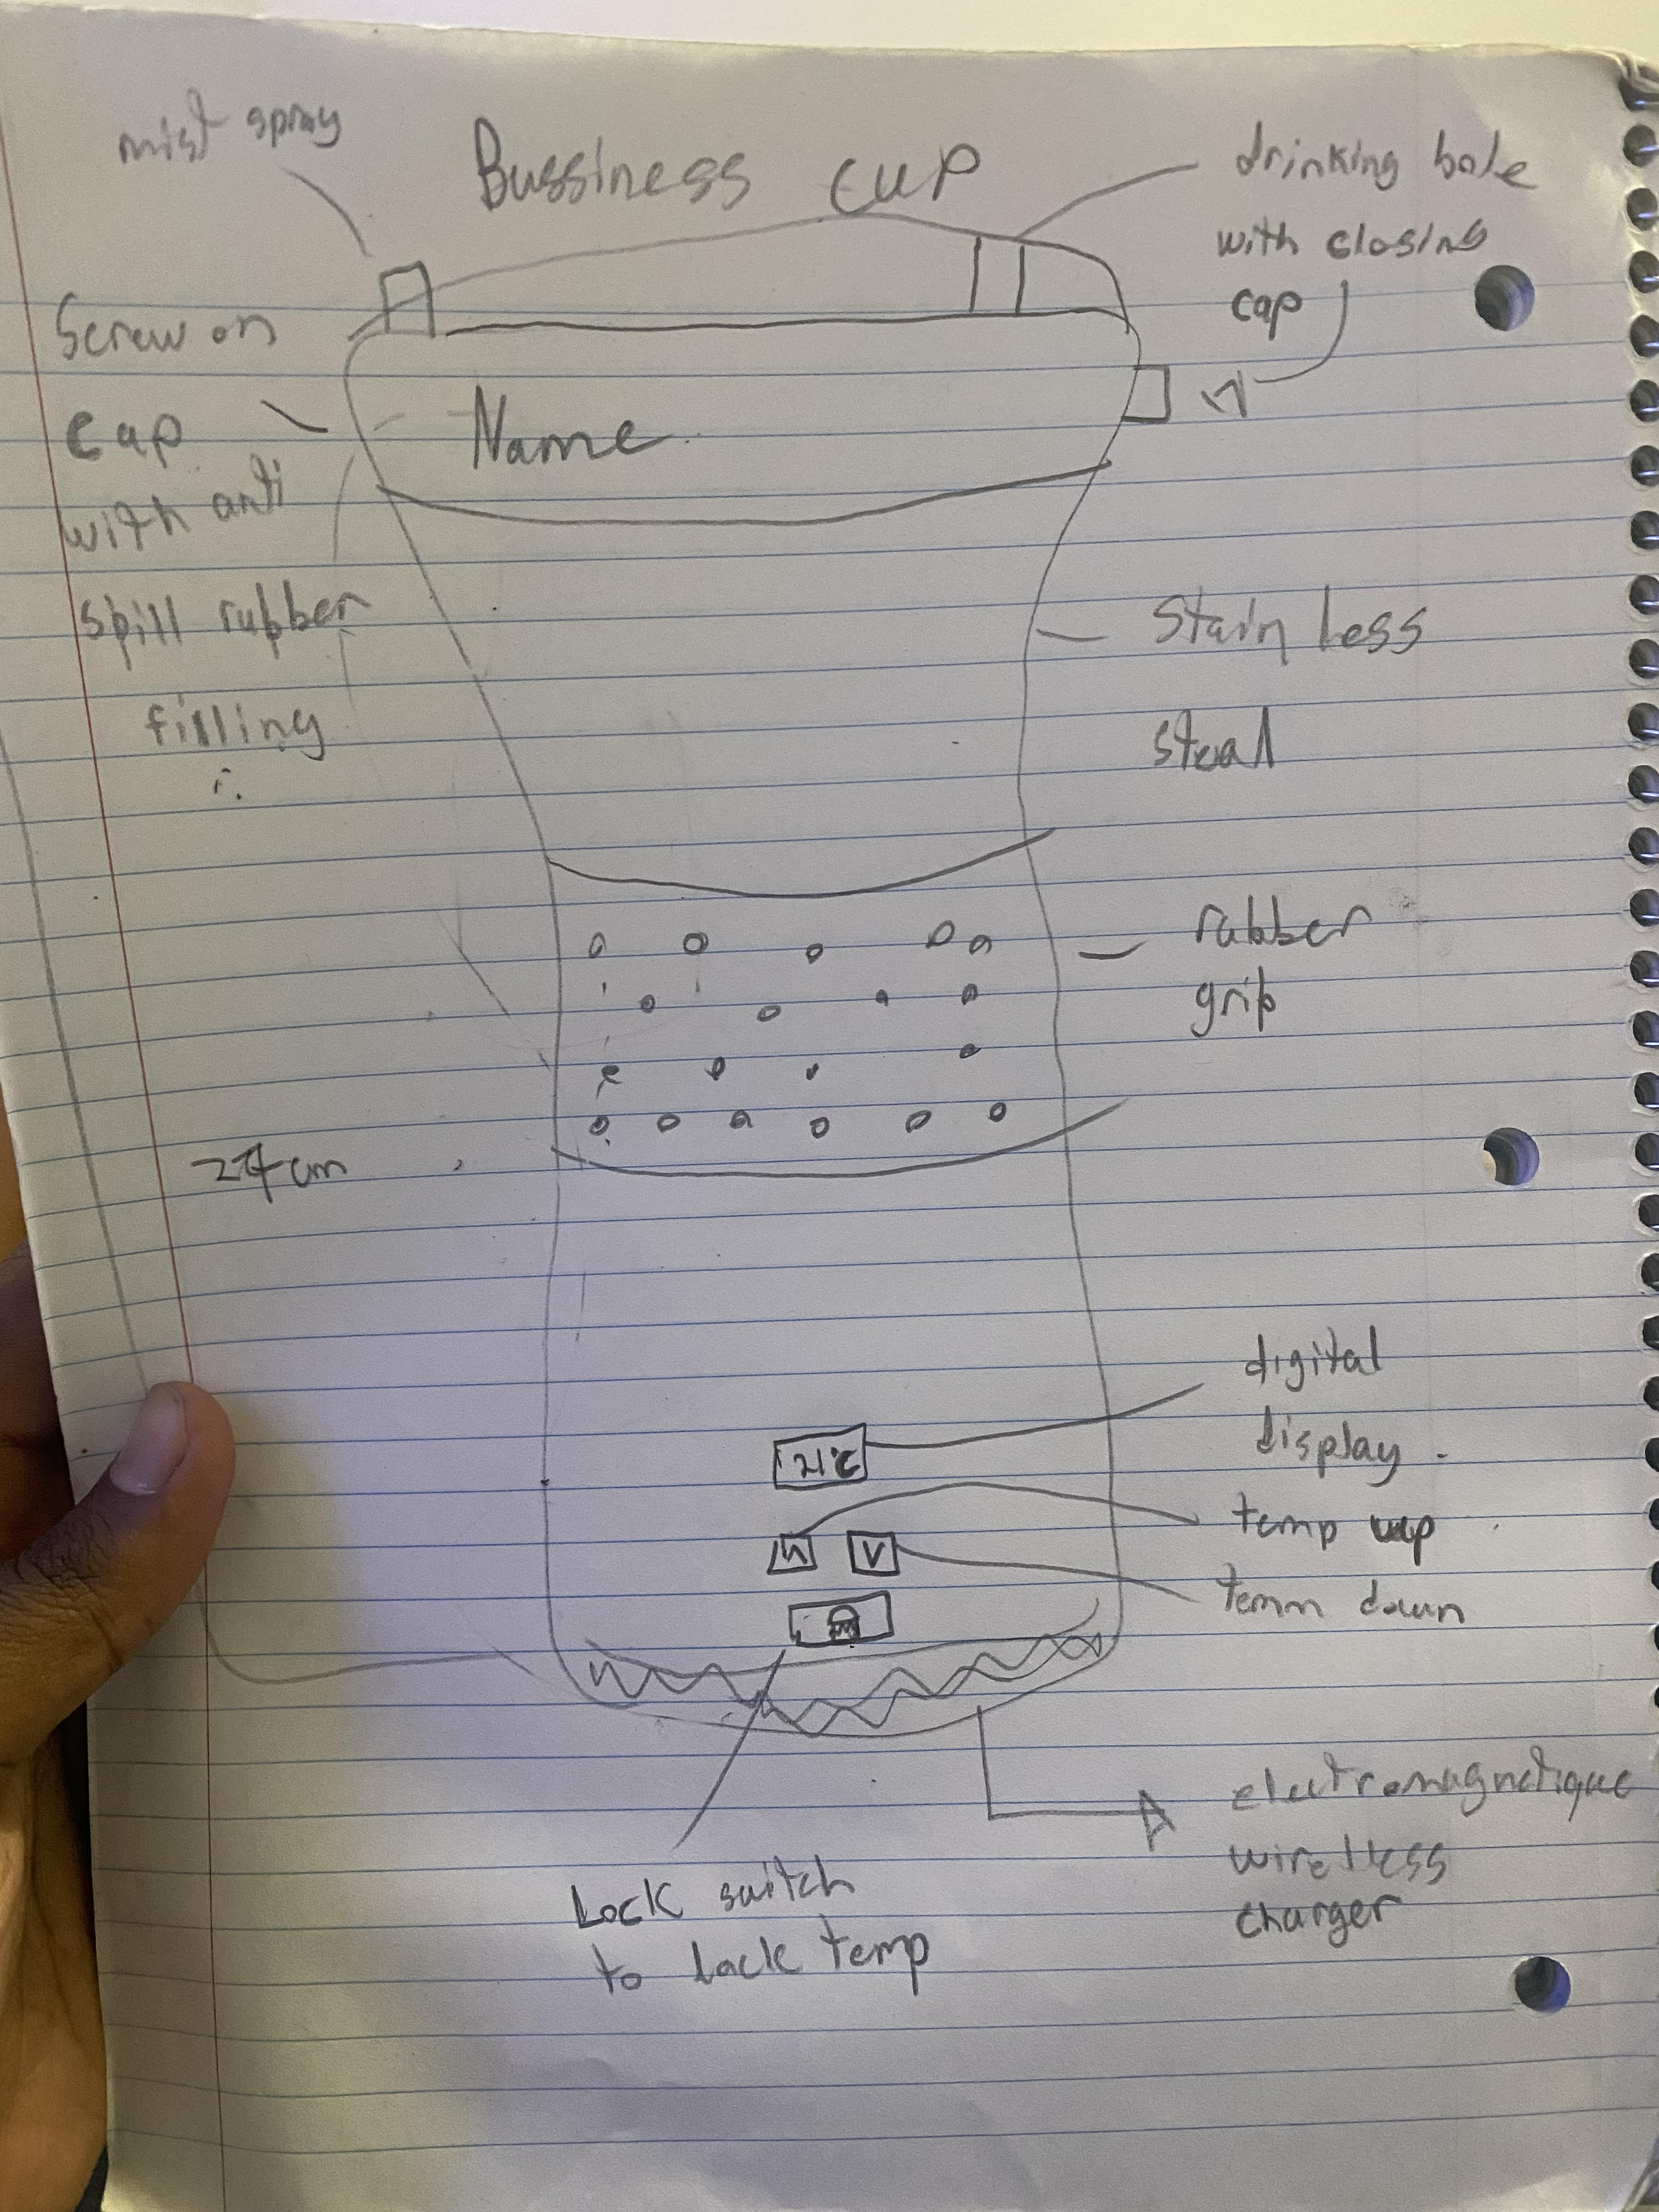 mist spray
Bussiness cup
drinking hole
with closing
cap
Screw on
cap
with anti
spill rubber
filling
Name
Stain less
steal
rubber
grip
cm
21°C
digital
display
temp up
V
down
Lock switch
to lock temp
electromagnetique
wireless
charger